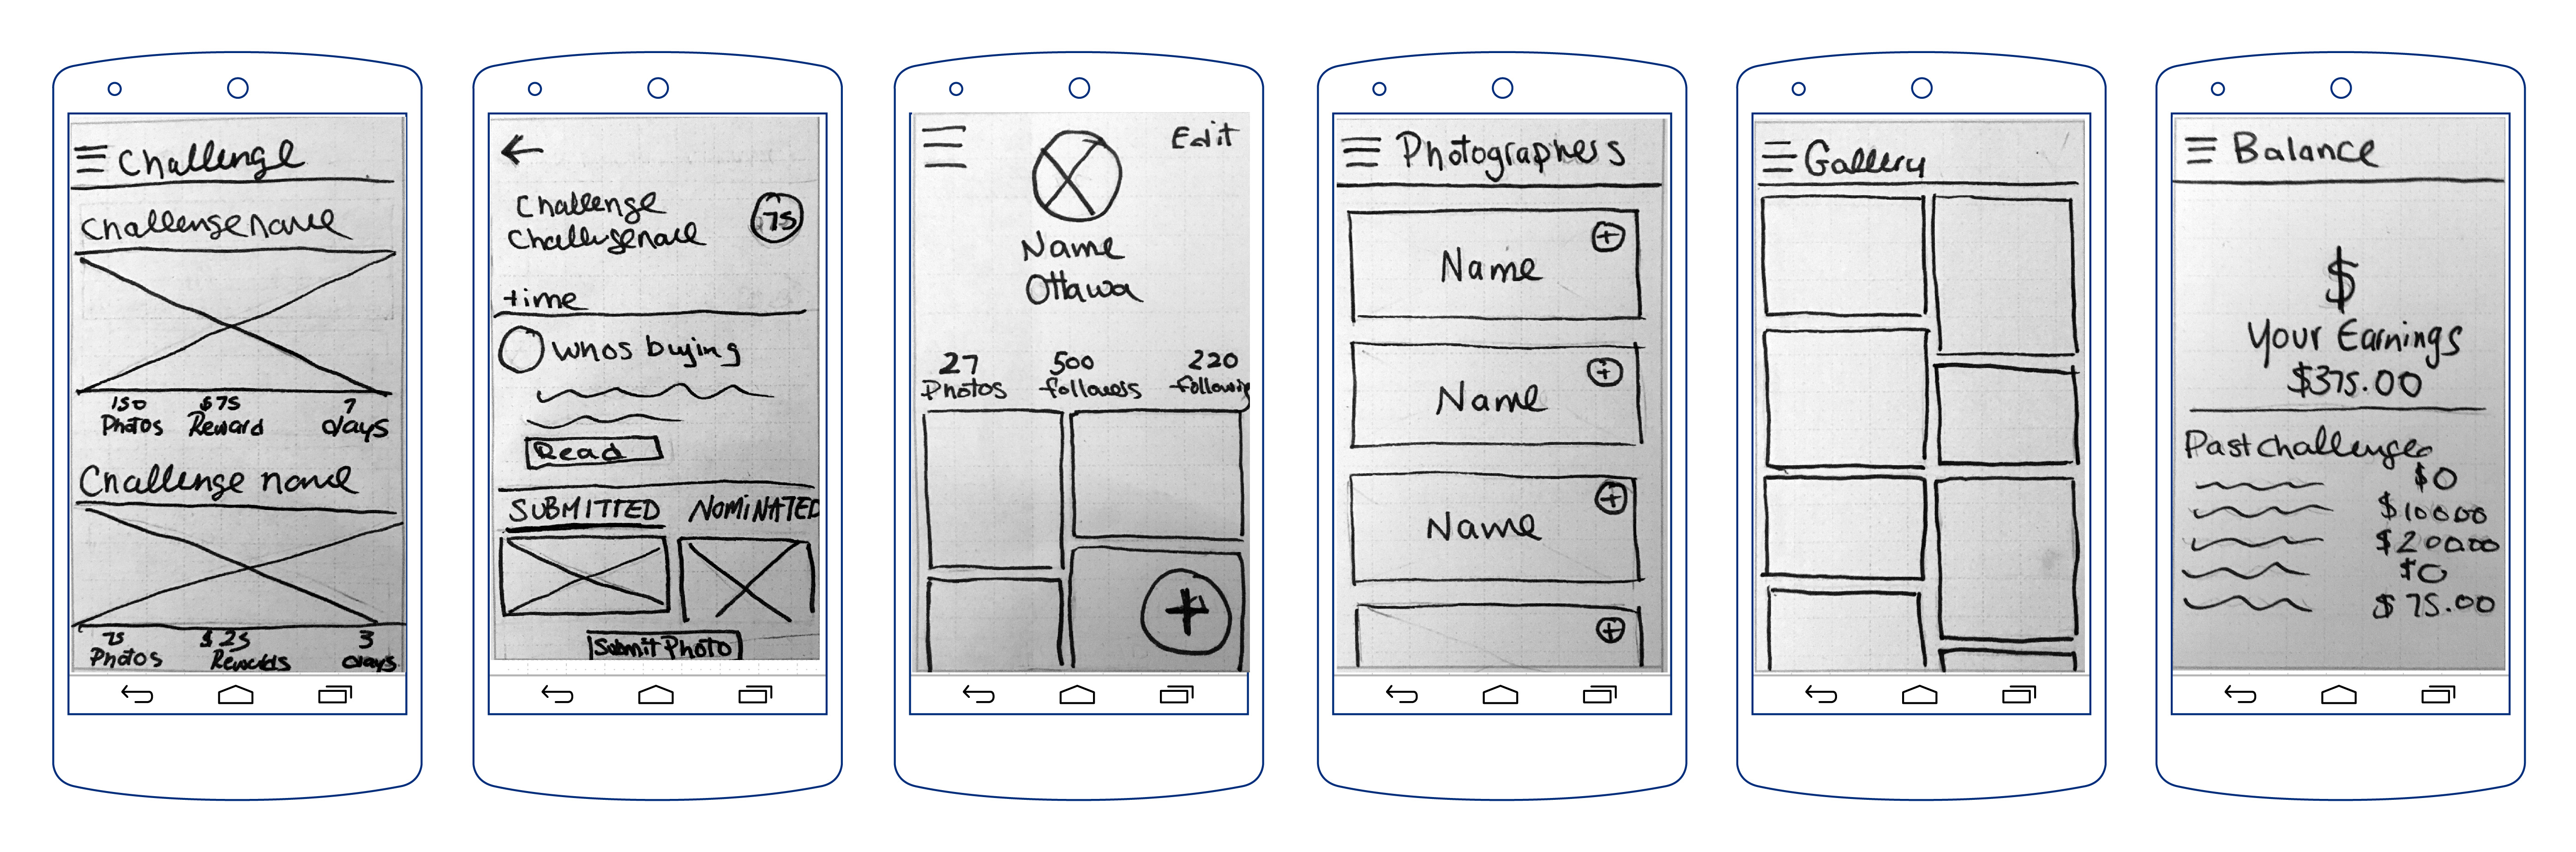 Challenge
Challenge name
150 $75 7
Photos Reward days
Challenge name
75 $25 3
Photos Rewards days
Challenge
Challenge name
75
time
Whos buying
Read
SUBMITTED NOMINATED
Submit Photo
Edit
Name
Ottawa
27 500 220
Photos followers following
Photographers
Name
Name
Name
Gallery
Balance
$
Your Earnings
$375.00
Past challenges
$0
$100.00
$200.00
$0
$75.00